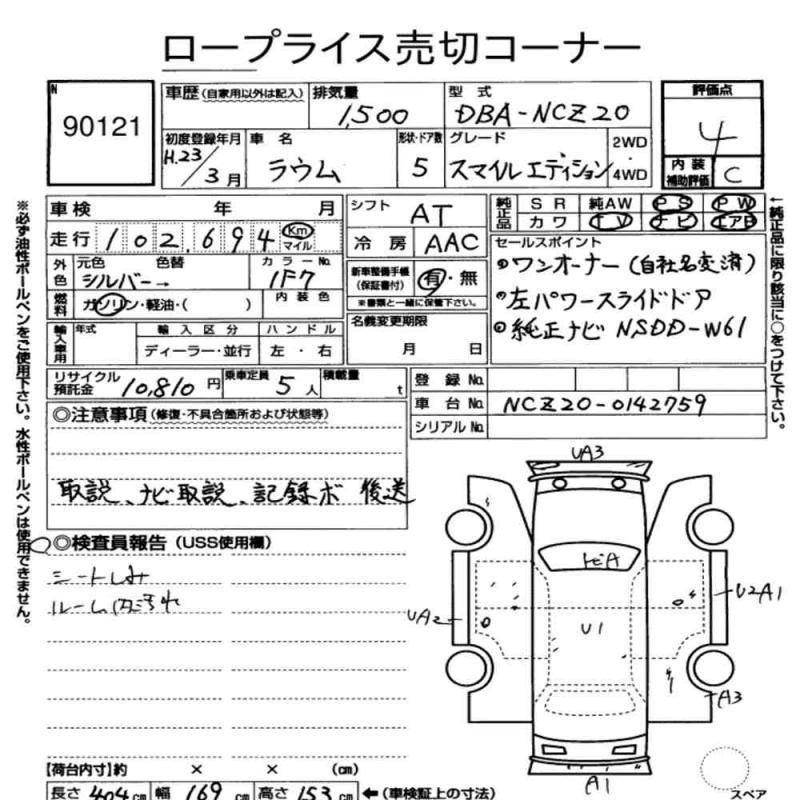 ロープライス売切コーナー
N
90121
車歴 (自家用以外は記入)
排気量
1,500
型式
DBA-NCZ20
評価点
4
初度登録年月
H.23/3月
車名
ラウム
形状・ドア数
5
グレード
スマイルエディション
2WD
4WD
内装
補助評価
C
車検 年 月
シフト
AT
純正品
SR 純AW PS PW
カワ TV ナビ エアB
走行 102,694 Km
マイル
冷房 AAC
セールスポイント
外色
元色 色替 カラーNo.
シルバー→ 1F7
新車整備手帳
(保証書付)
有・無
※書類と一緒に保管下さい。
①ワンオーナー (自社名変済)
燃料
ガソリン・軽油・( )
内装色
②左パワースライドドア
輸入車用
年式
輸入区分
ハンドル
ディーラー・並行
左・右
名義変更期限
月 日
③純正ナビ NSDD-W61
リサイクル
預託金
10,810円
乗車定員 5人
積載量 t
登録No.
車台No. NCZ20-0142759
シリアルNo.
◎注意事項 (修復・不具合箇所および状態等)
取説、ナビ取説、記録ボ 後送
◎検査員報告 (USS使用欄)
シートしみ
ルーム内汚れ
UA3
トビA
U2A1
UA2
U1
A3
A1
スペア
【荷台内寸】約 × × (cm)
長さ 404cm 幅 169cm 高さ 153cm ←(車検証上の寸法)
※必ず油性ボールペンをご使用下さい。水性ボールペンは使用できません。
←純正品に限り該当に○をつけて下さい。